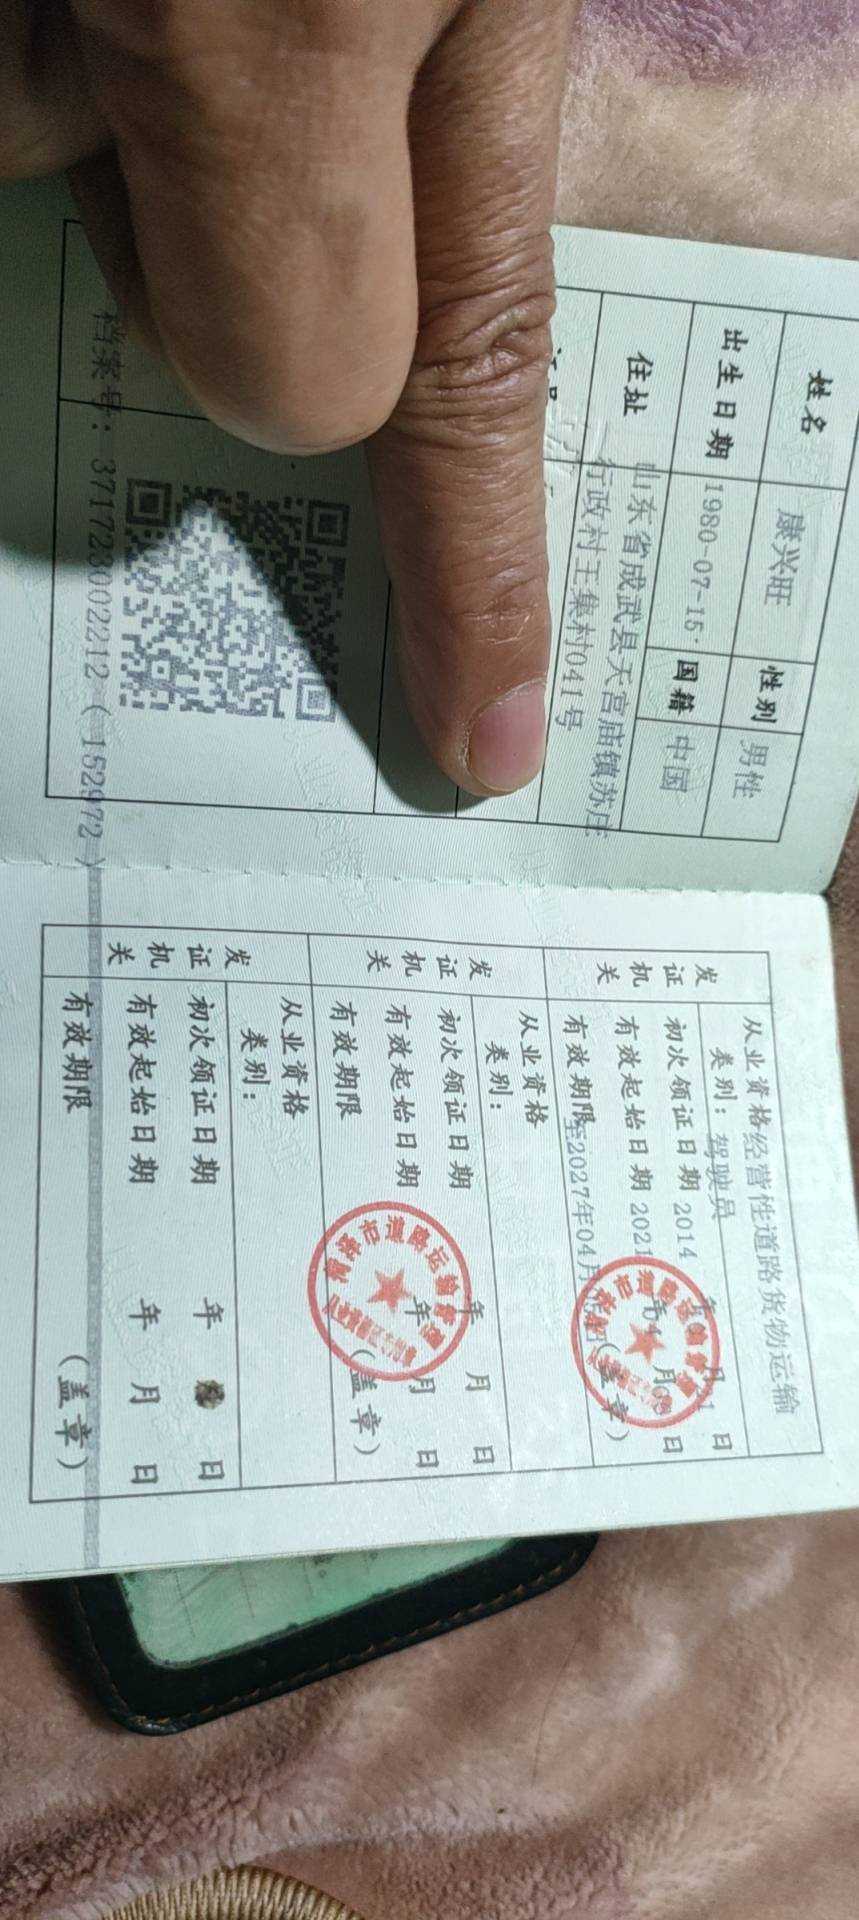 姓名 康兴旺 性别 男性
出生日期 1980-07-15 国籍 中国
住址 山东省成武县天宫庙镇苏庄
行政村王集村041号
档案号：371723002212（152972）
发证机关
从业资格 经营性道路货物运输
类别：驾驶员
初次领证日期 2014 年 月21日
有效起始日期 2021年04月 日
有效期限 至2027年04月
（盖章）
发证机关
从业资格
类别：
初次领证日期 年 月 日
有效起始日期 年 月 日
有效期限
（盖章）
市道路运输
发证机关
从业资格
类别：
初次领证日期 年 日
有效起始日期 年 月 日
有效期限
（盖章）